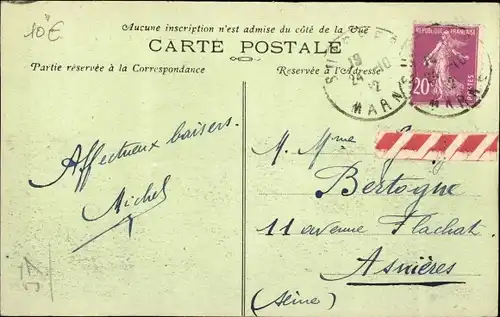 10€
Aucune inscription n'est admise du côté de la Vue
CARTE POSTALE
Partie réservée à la Correspondance
Réservée à l'Adresse
19
MARNE
MARNE
REPUBLIQUE FRANÇAISE
20
POSTES
Affectueux baisers.
Michel
M. Mme
Bertogne
11 avenue Flachat
Asnières
(Seine)